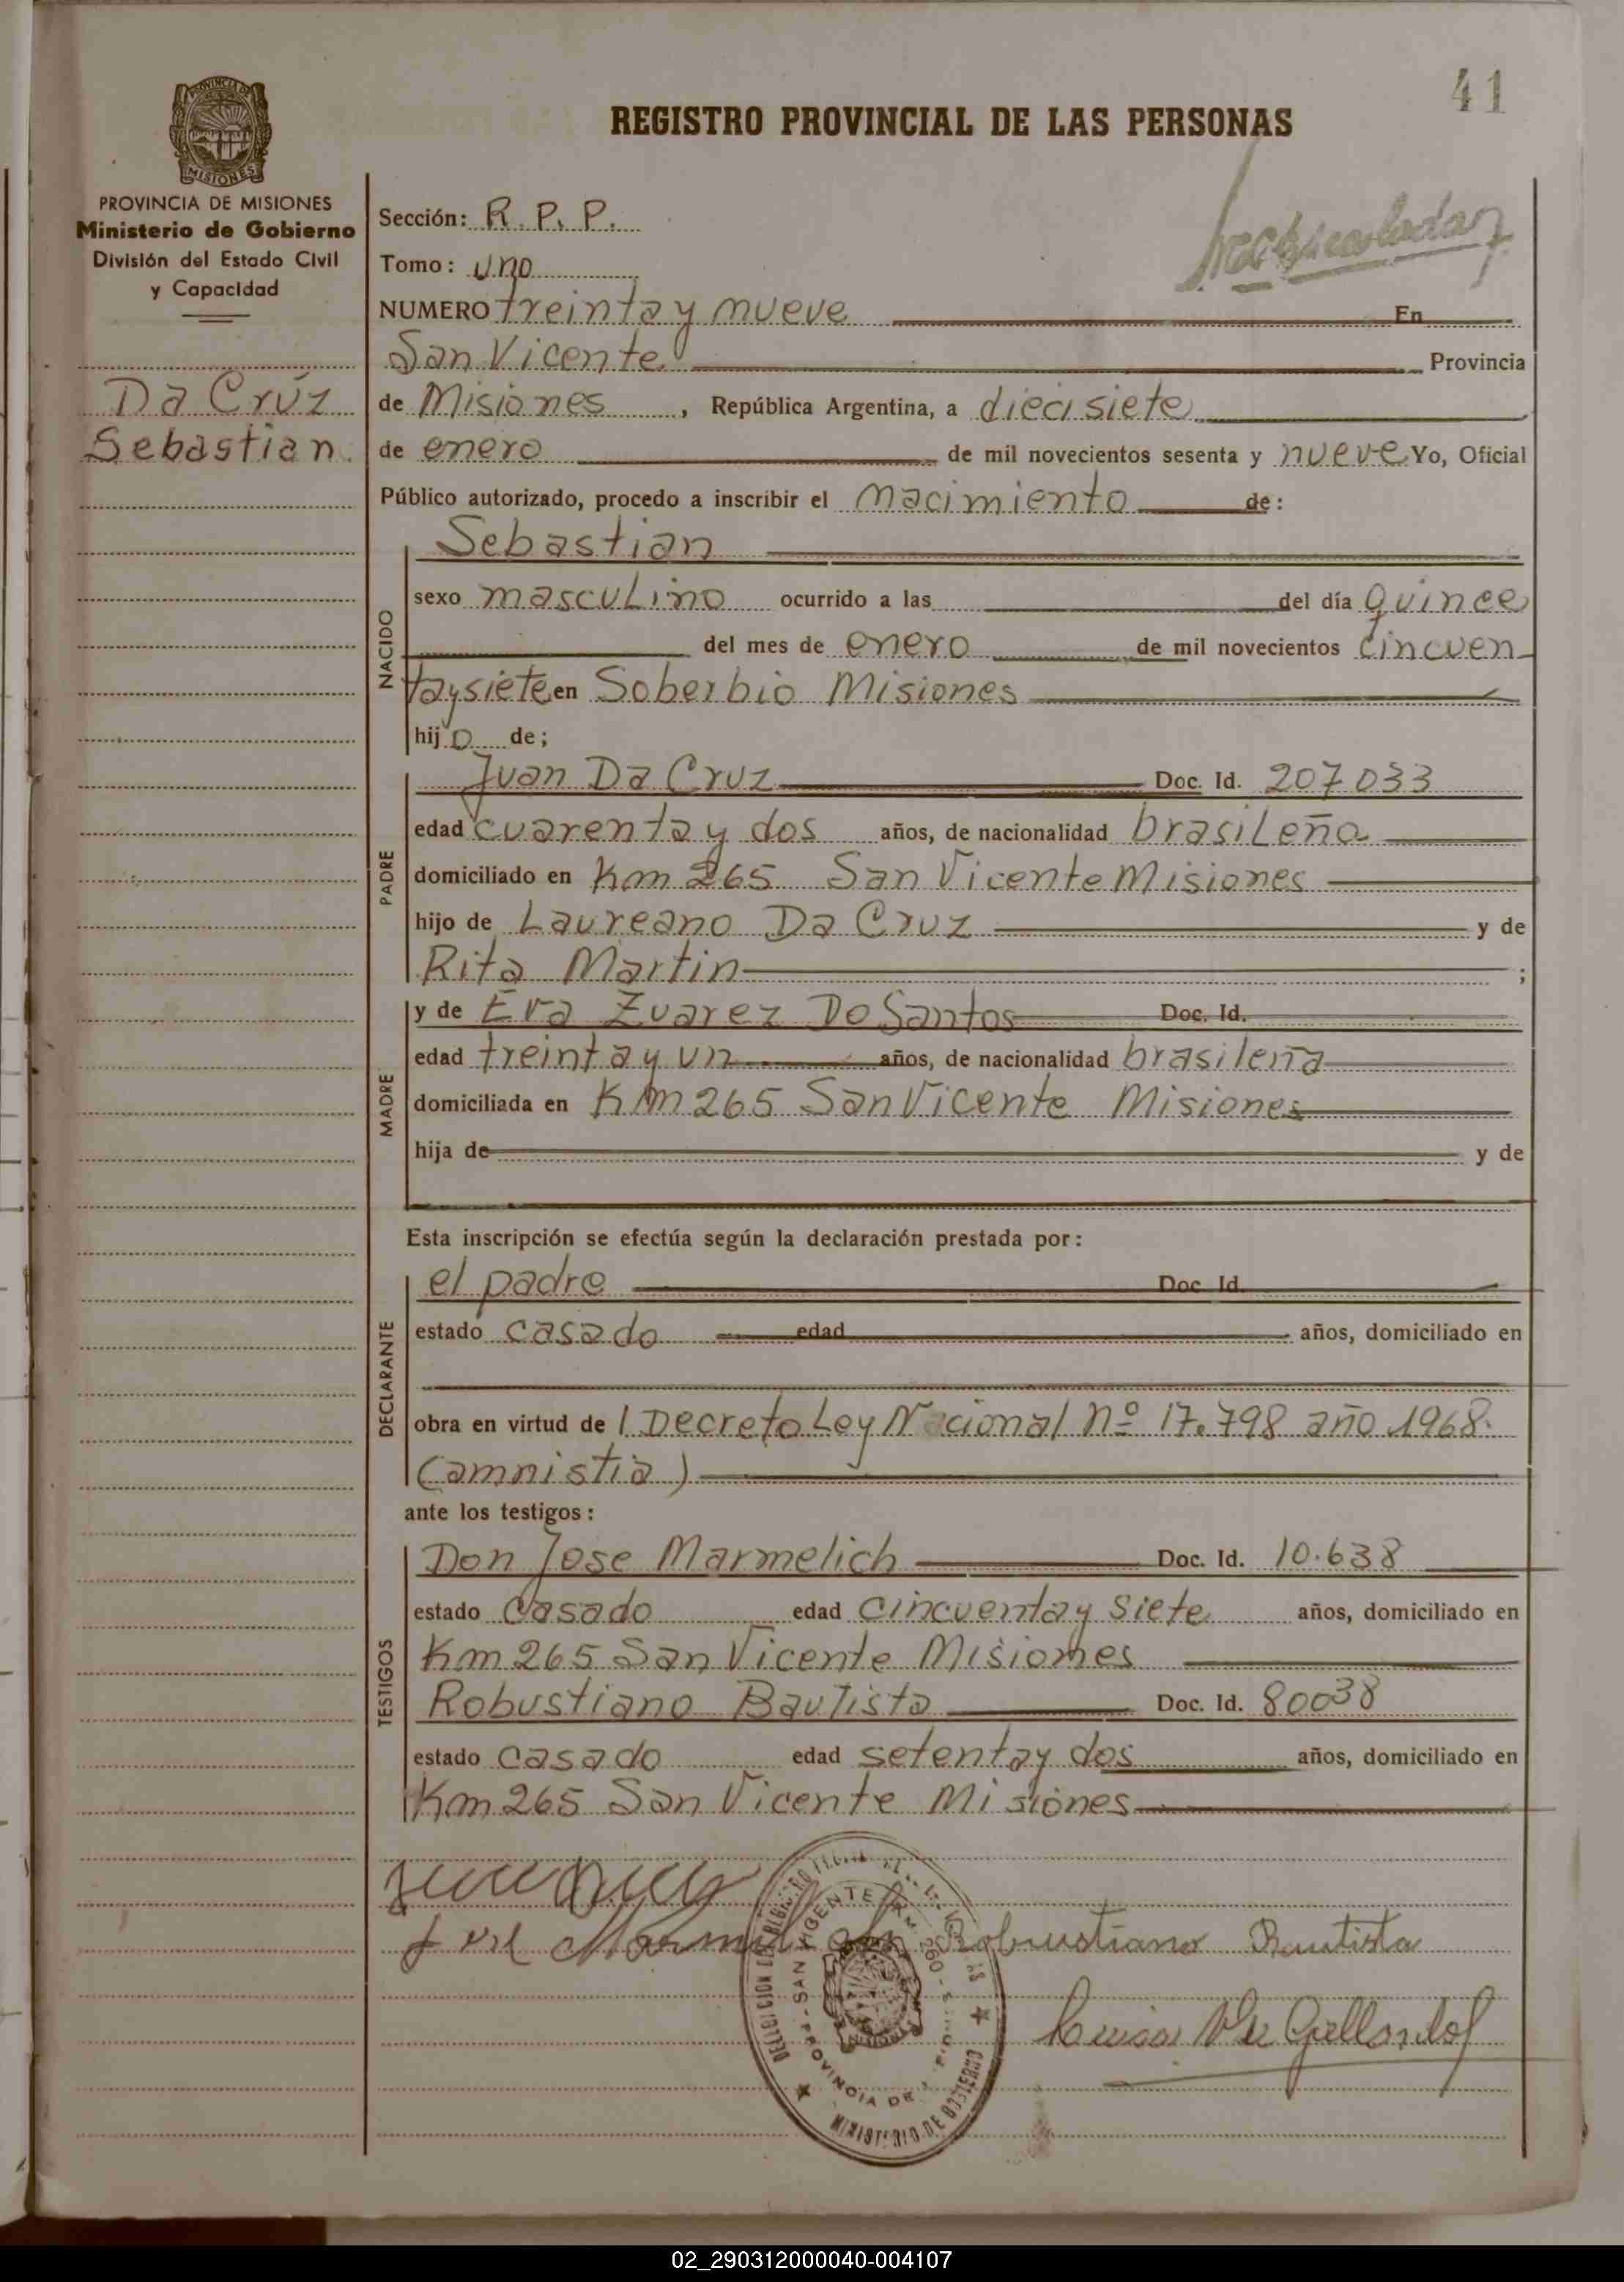 41
REGISTRO PROVINCIAL DE LAS PERSONAS
PROVINCIA DE
MISIONES
PROVINCIA DE MISIONES
Ministerio de Gobierno
División del Estado Civil
y Capacidad
Da Cruz
Sebastian.
Sección: R. P. P.
Tomo: uno
NUMERO treinta y nueve En
San Vicente Provincia
de Misiones, República Argentina, a diecisiete
de enero de mil novecientos sesenta y nueve Yo, Oficial
Público autorizado, procedo a inscribir el nacimiento de:
NACIDO
Sebastian
sexo masculino ocurrido a las del día quince
del mes de enero de mil novecientos cincuen
taysiete en Soberbio Misiones
hijo de;
PADRE
Juan Da Cruz Doc. Id. 207.033
edad cuarenta y dos años, de nacionalidad brasileña
domiciliado en Km 265 San Vicente Misiones
hijo de Laureano Da Cruz y de
Rita Martin ;
MADRE
y de Eva Zuarez Do Santos Doc. Id.
edad treinta y un años, de nacionalidad brasileña
domiciliada en Km 265 San Vicente Misiones
hija de y de
Esta inscripción se efectúa según la declaración prestada por:
DECLARANTE
el padre Doc. Id.
estado casado edad años, domiciliado en
obra en virtud de l Decreto Ley Nacional nº 17.798 año 1968.
(amnistia)
ante los testigos:
TESTIGOS
Don Jose Marmelich Doc. Id. 10.638
estado casado edad cincuenta y siete años, domiciliado en
Km 265 San Vicente Misiones
Robustiano Bautista Doc. Id. 80038
estado casado edad setenta y dos años, domiciliado en
Km 265 San Vicente Misiones
Robustiano Bautista
SAN VICENTE KM 260
PROVINCIA DE
MINISTERIO DE GOBIERNO
02_290312000040-004107